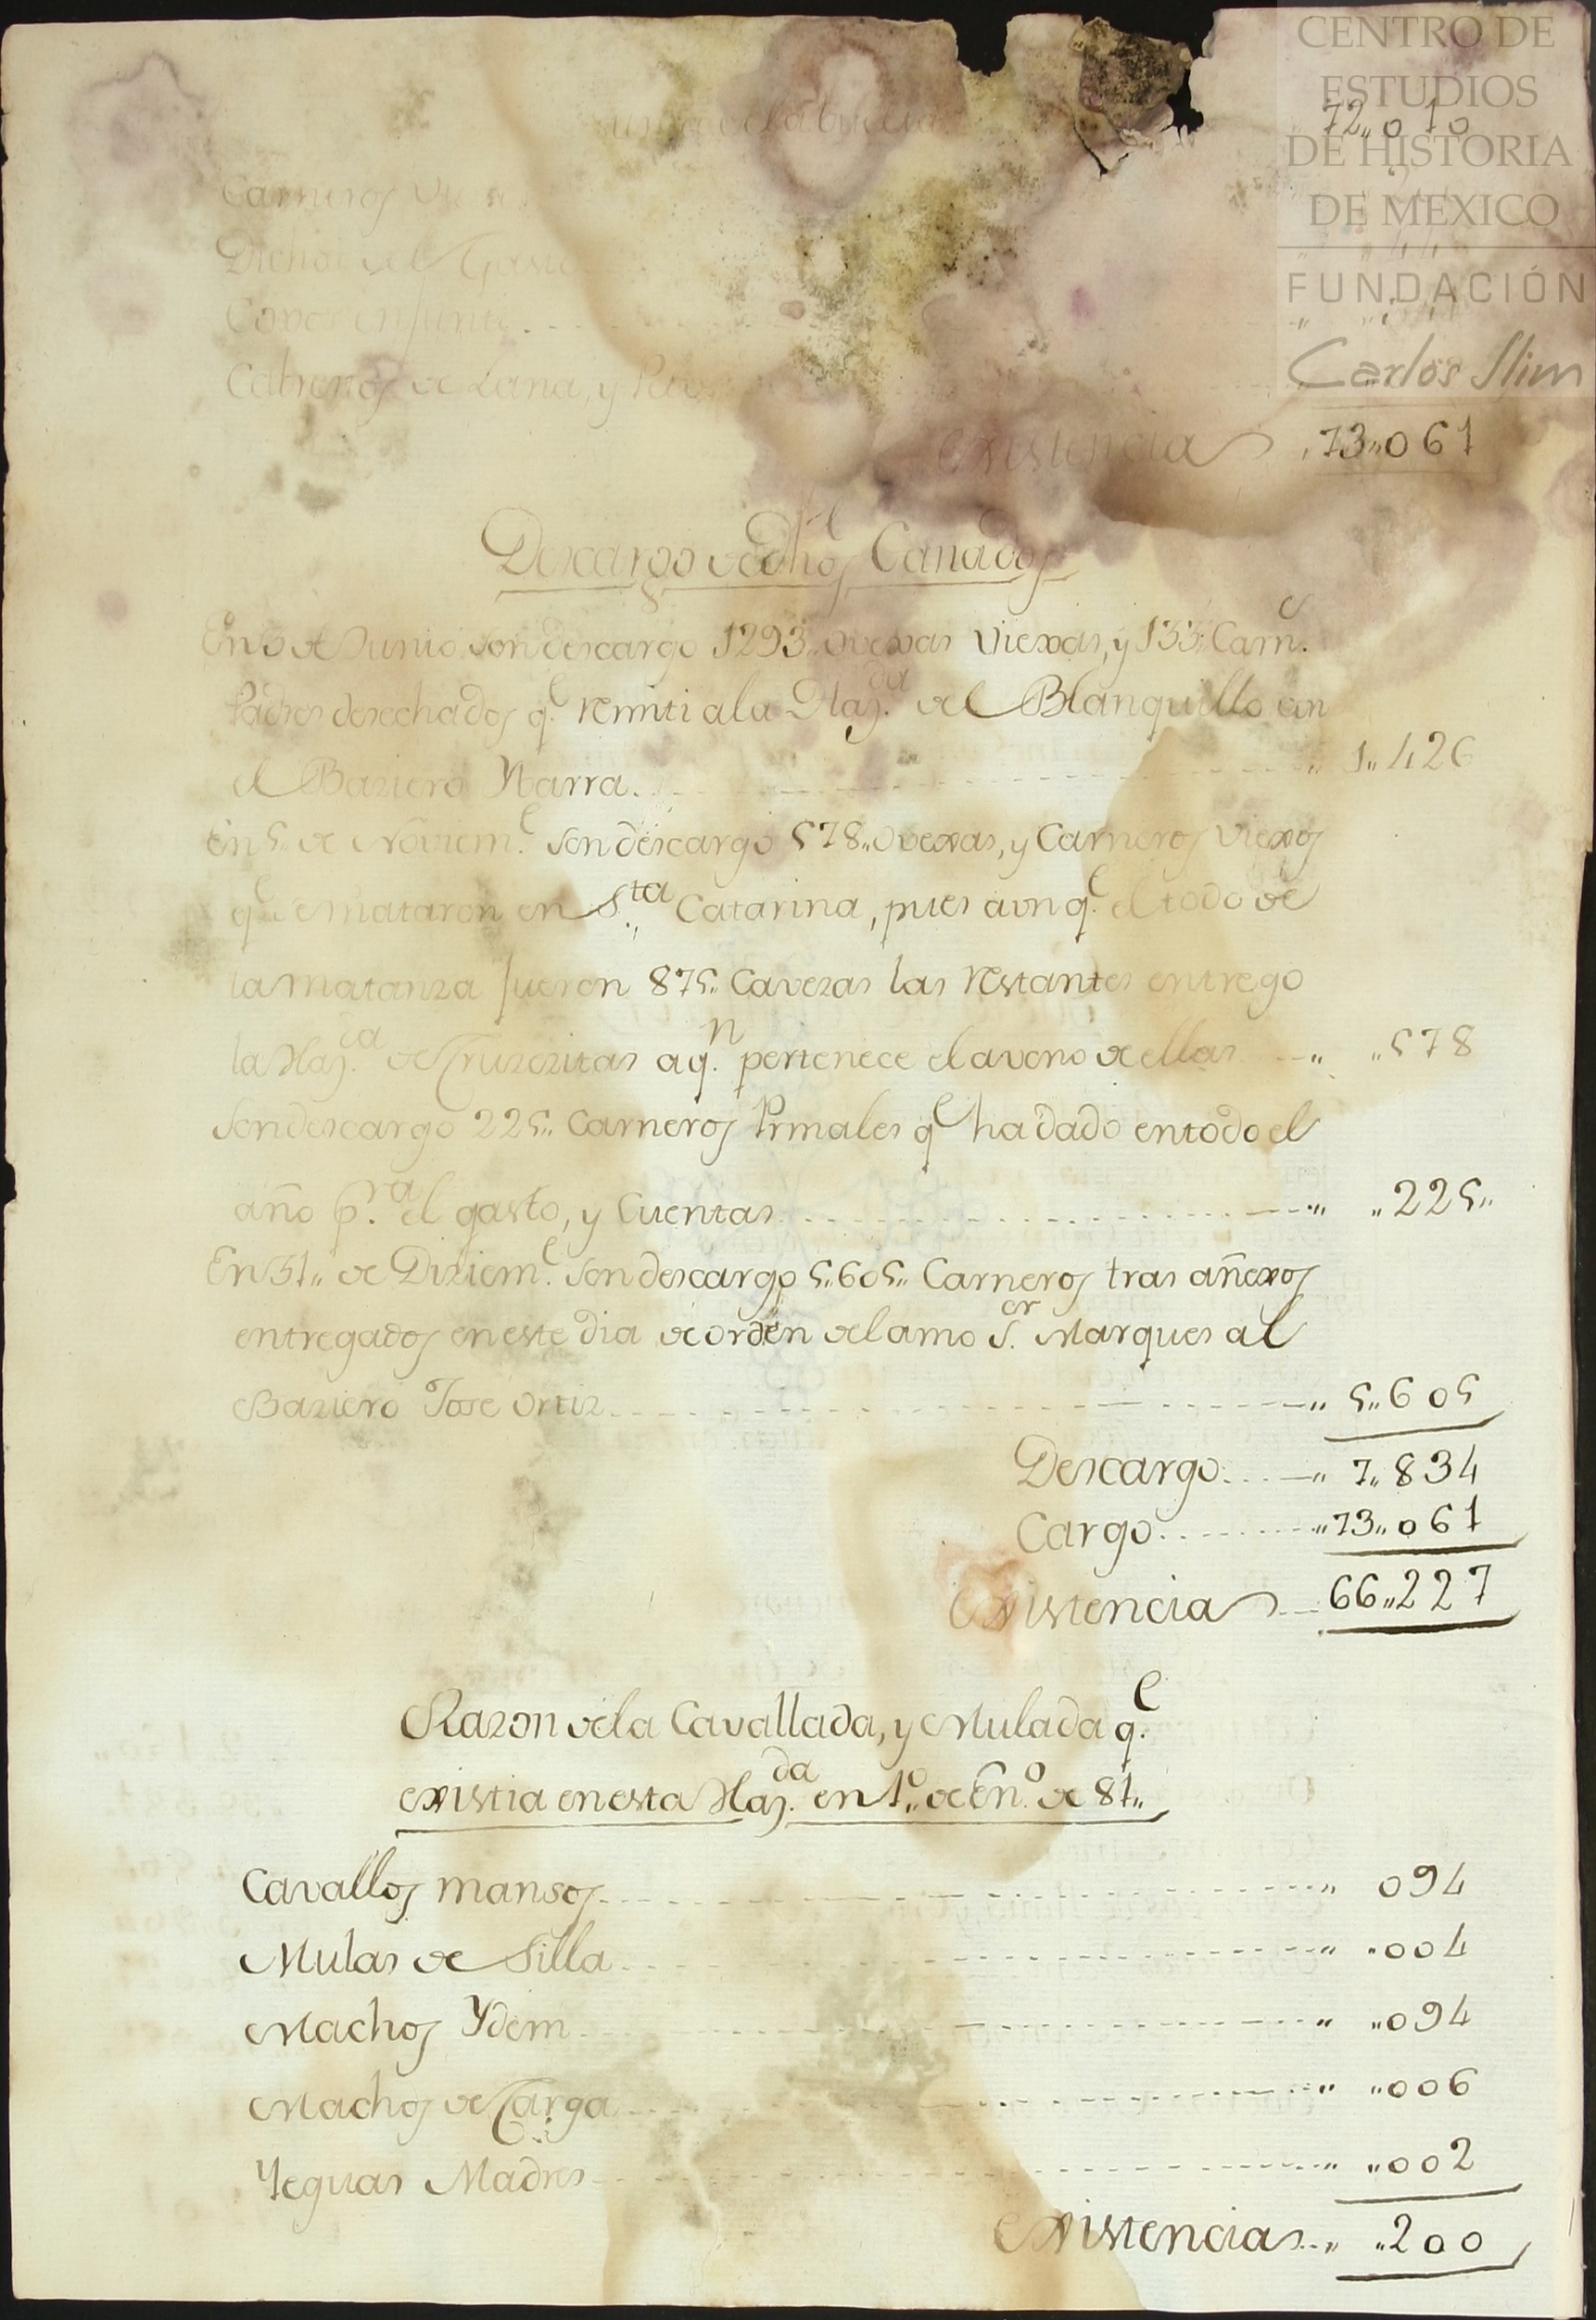 CENTRO DE
ESTUDIOS
DE HISTORIA
DE MEXICO
FUNDACIÓN
Carlos Slim
de la buelta 72,,010
Carneros
Dichos del Gasto
Cabrenos de Lana, y Pelo
existencia ,73,,061
Descargo de dhos Ganados
En 5 de Junio son descargo 1293,, ovexas viexas, y 133,, Carn.s
Padres desechados q.e remiti ala Haz.da del Blanquillo con
el Baziero Ybarra. ,, 1,,426
En 5,, de Noviem.e son descargo 578,, ovexas, y Carneros viexos
q.e se mataron en S.ta Catarina, pues aunq.e el todo de
la matanza fueron 875,, Cavezas las restantes entrego
la Haz.da de Cruzezitas aq.n pertenece el aveno de ellas ,, ,,578
Son descargo 225,, Carneros Primales q.e ha dado entodo el
año p.ra el gasto, y Cuentas ,, ,,225,,
En 31,, de Diziem.e son descargo 5,,605,, Carneros tras añexos
entregados en este dia de orden del amo S.or Marques al
Baziero Jose Ortiz ,, 5,,605
Descargo ,, 7,,834
Cargo ,,73,,061
existencia 66,,227
Razon dela Cavallada, y Mulada q.e
existia en esta Haz.da en 1.o de En.o de 81,,
Cavallos mansos ,, 094
Mulas de Silla ,, ,,004
Machos Ydem ,, ,,094
Machos de Carga ,, ,,006
Yeguas Madres ,, ,,002
existencias ,, ,,200